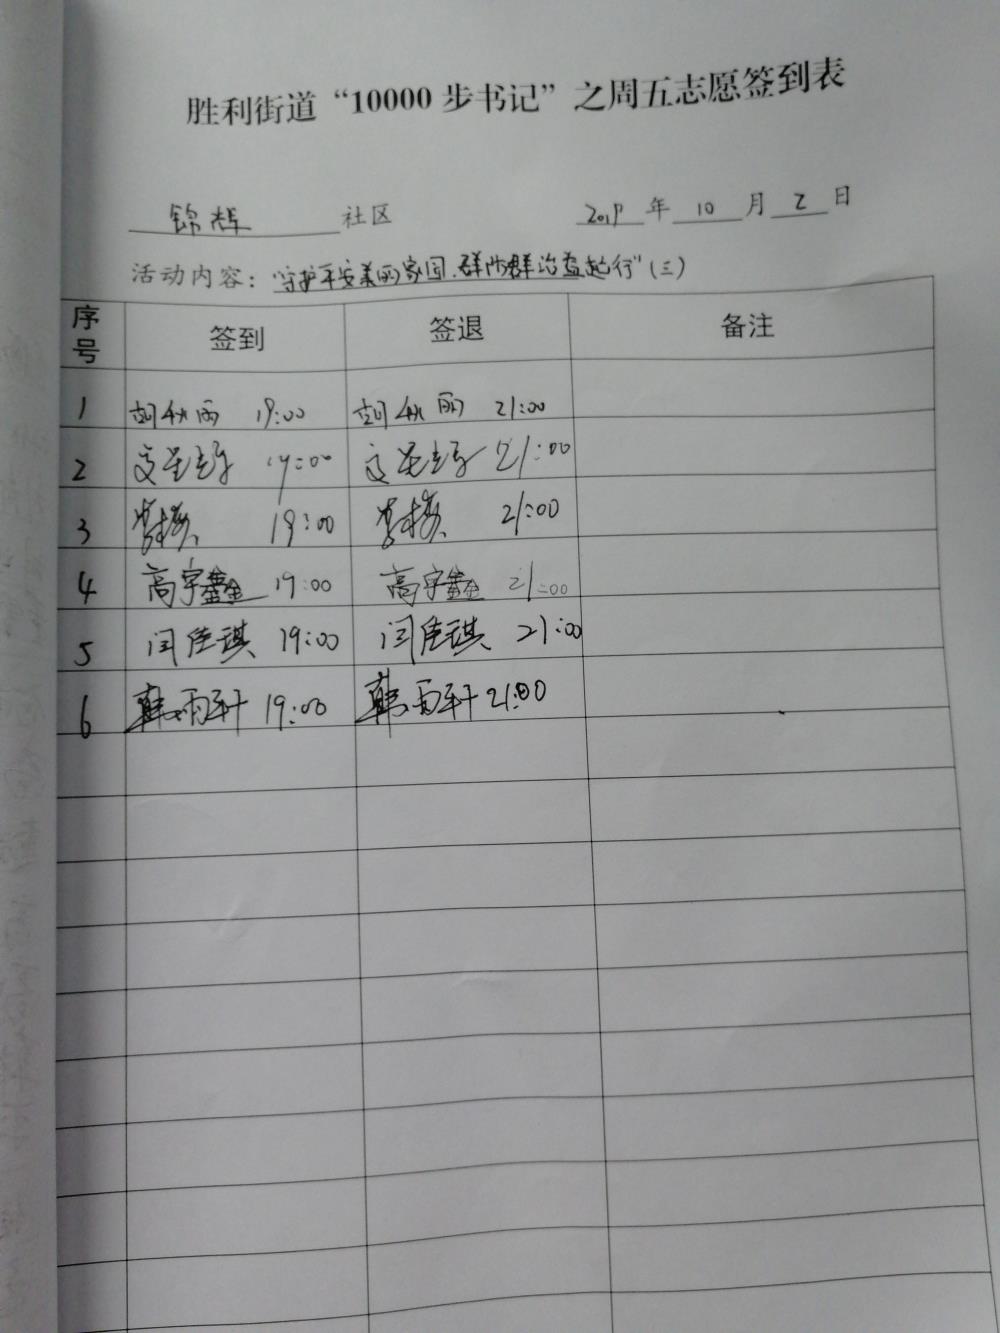 胜利街道“10000步书记”之周五志愿签到表
锦辉 社区 2019 年 10 月 2 日
活动内容：“守护平安美丽家园.群防群治益起行”(三)
序号 签到 签退 备注
1 胡秋丽 19:00 胡秋丽 21:00
2 19:00 21:00
3 19:00 21:00
4 高宇鑫 19:00 高宇鑫 21:00
5 闫佳琪 19:00 闫佳琪 21:00
6 韩雨轩 19:00 韩雨轩 21:00